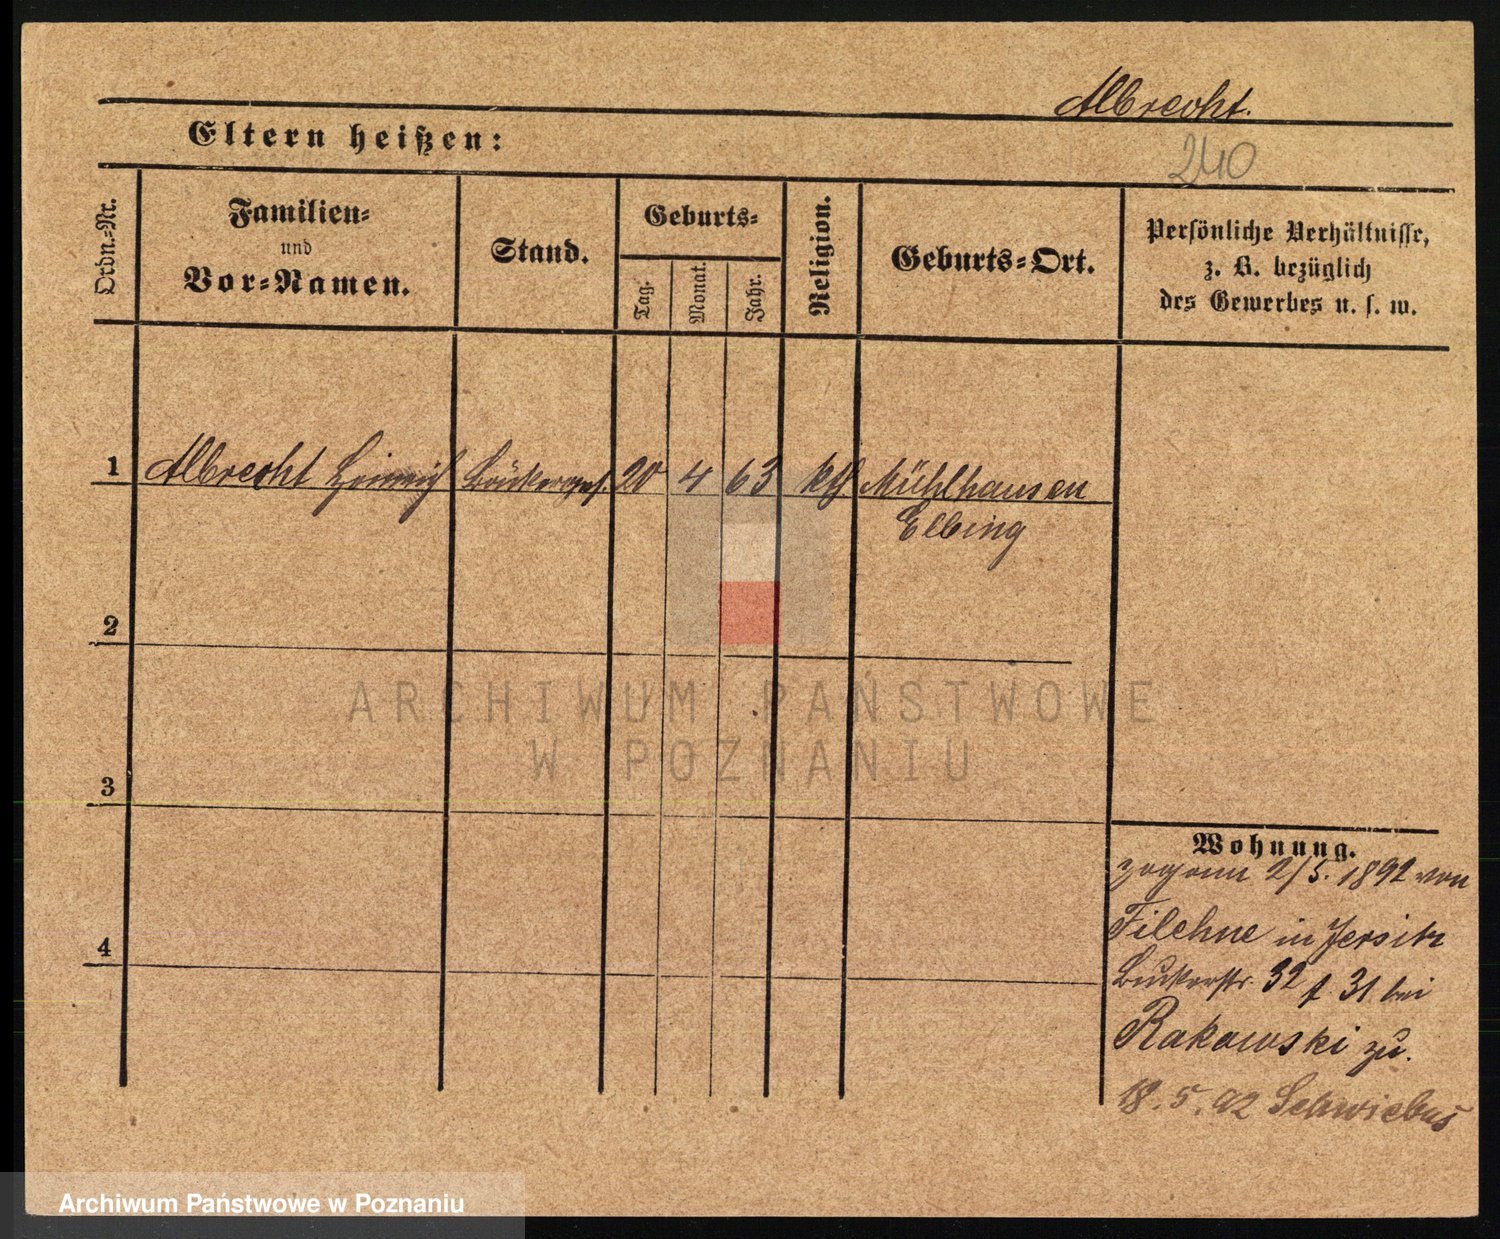 Albrecht.
Eltern heißen:
240
Ordn.=Nr.
Familien=
und
Vor=Namen.
Stand.
Geburts=
Tag.
Monat.
Jahr.
Religion.
Geburts=Ort.
Persönliche Verhältnisse,
z. B. bezüglich
des Gewerbes u. s. w.
1 Albrecht Heinrich Bäckerges. 20 4 63 kth Mühlhausen
Elbing
2
3
4
ARCHIWUM PAŃSTWOWE
W POZNANIU
Wohnung.
2/5. 1892 von
Filehne in Jersitz
32 31 bei
Rakowski zu.
18.5.92 Schwiebus
Archiwum Państwowe w Poznaniu